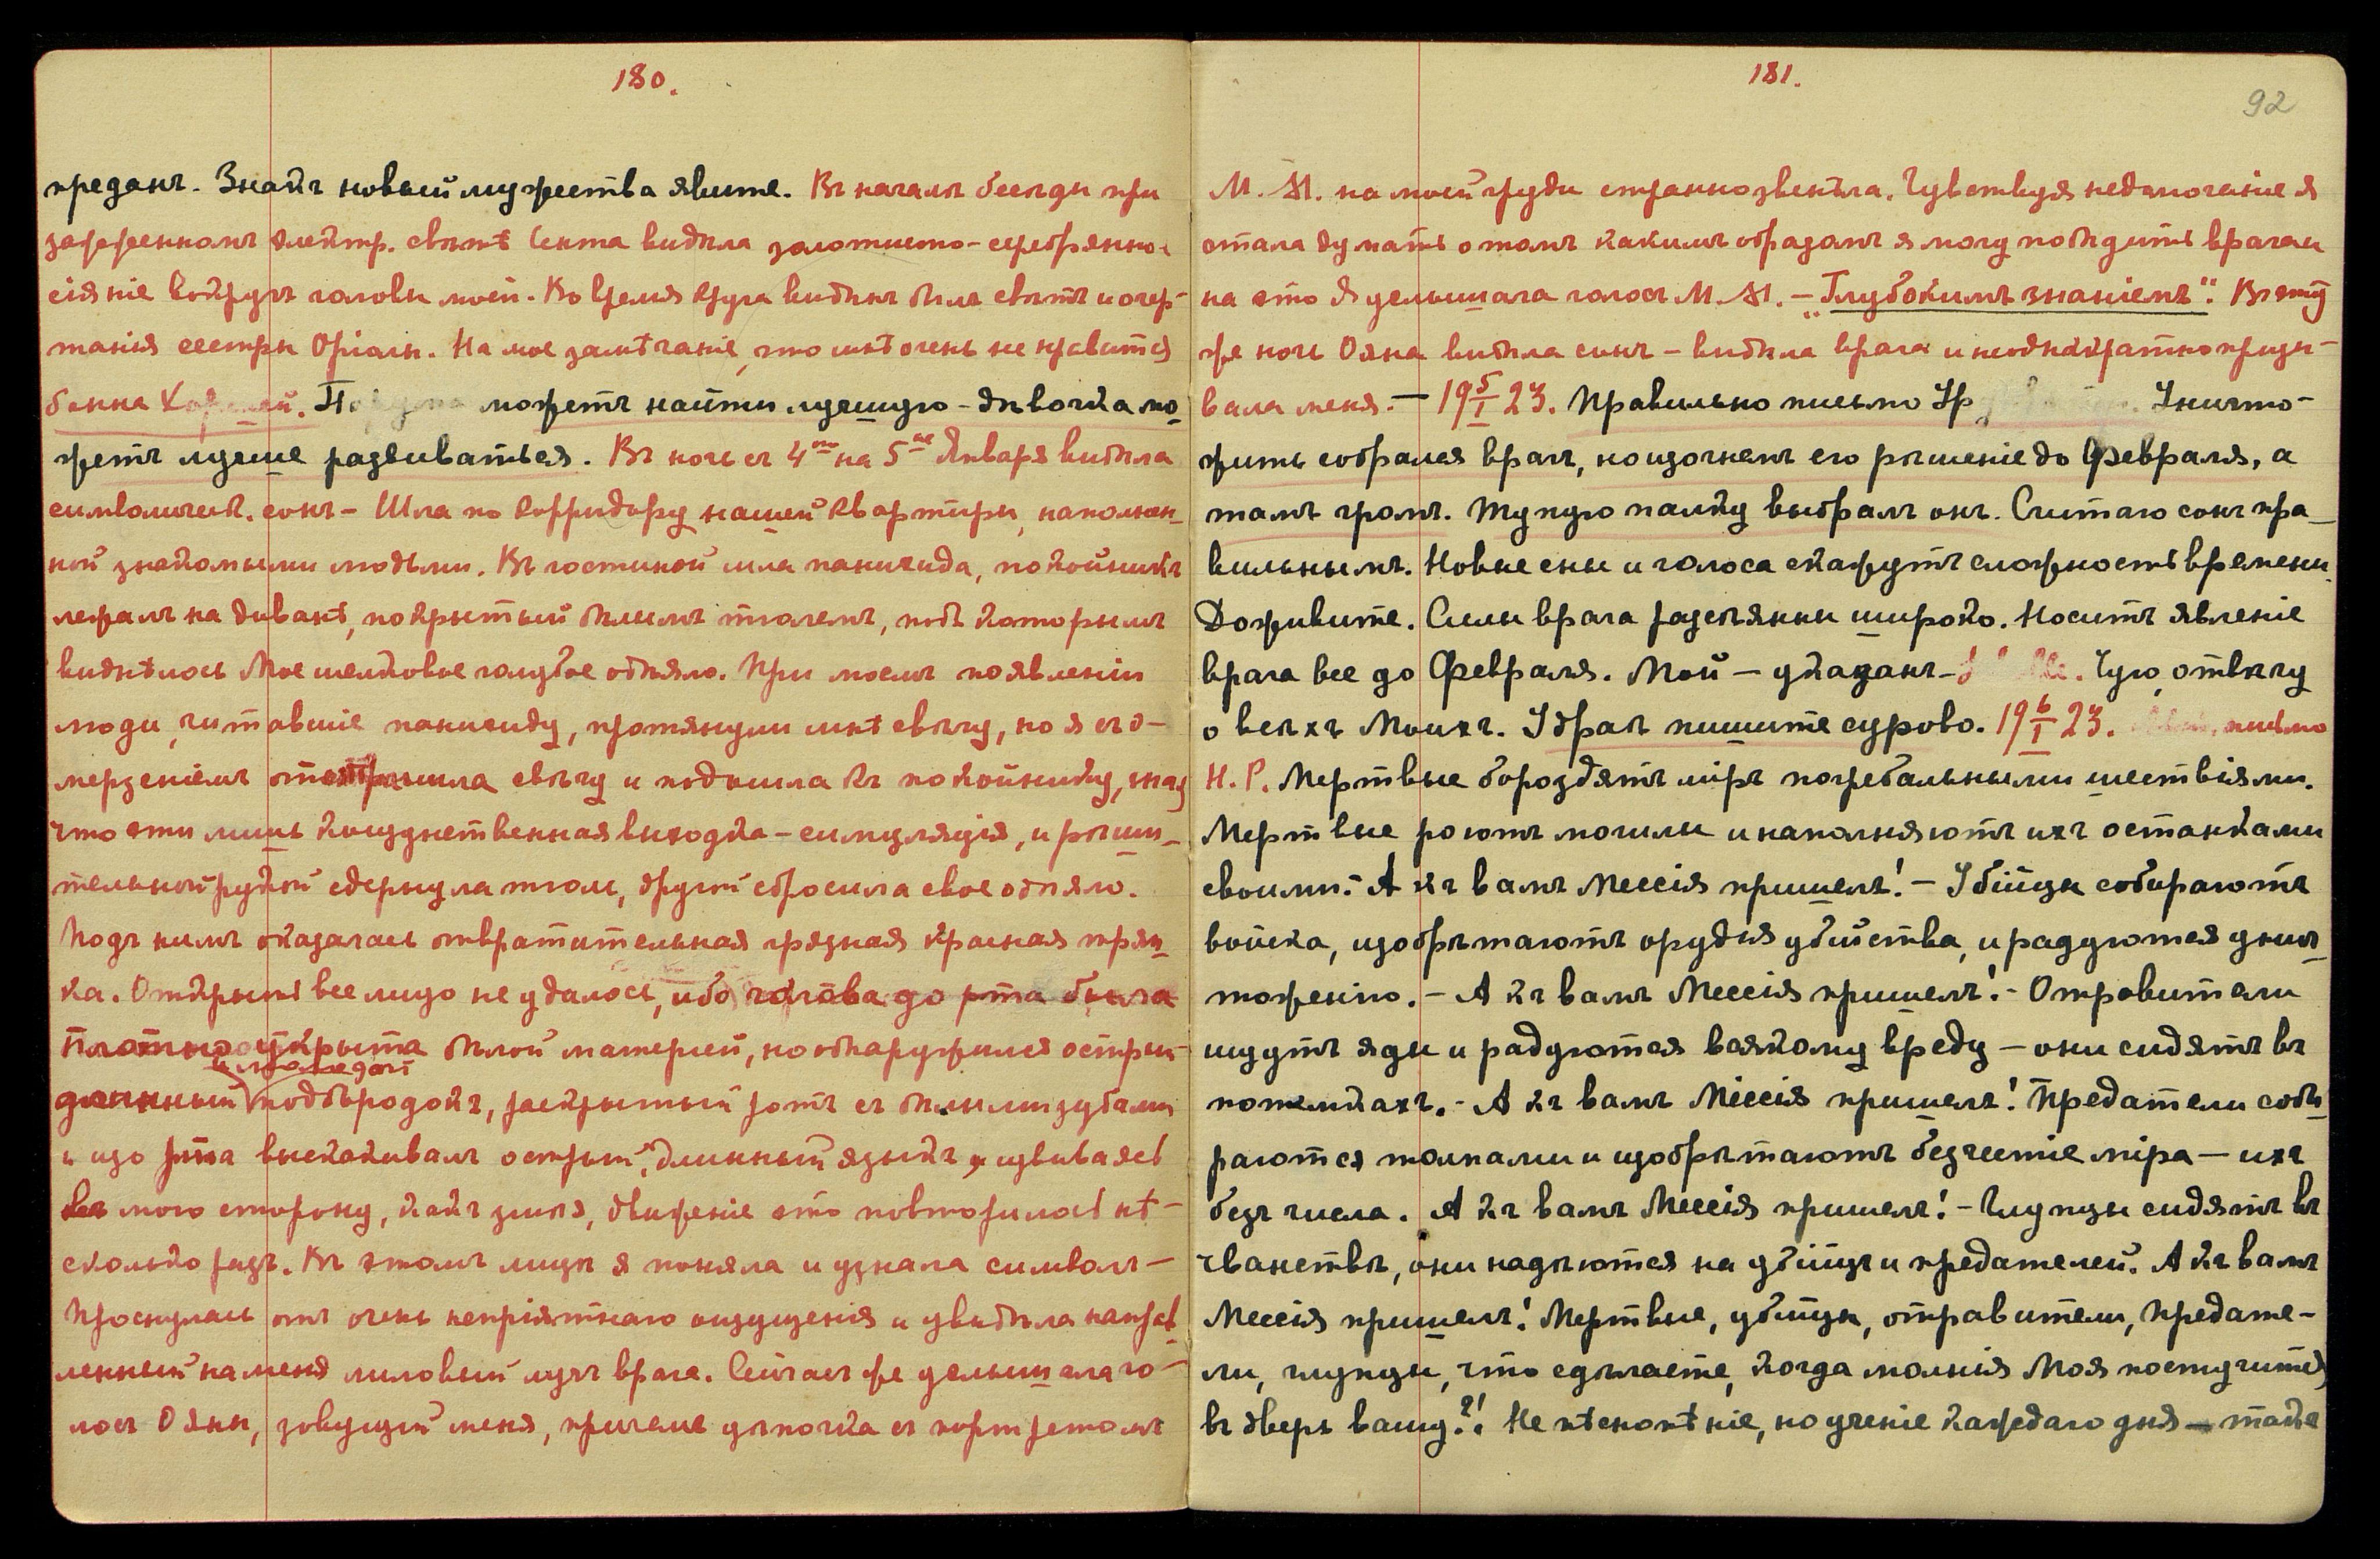 180.
преданъ. Знакъ новый мужества явите. Въ началѣ бесѣды при
зажженномъ электр. свѣтѣ Сента видѣла золотисто-серебрянное
сіяніе вокругъ головы моей. Во время круга видѣнъ былъ свѣтъ и очер-
танія сестры Оріолы. На мое замѣчаніе, что мнѣ очень не нравится
бонна можетъ найти лучшую - дѣвочка мо
жетъ лучше развиваться. Въ ночь съ 4го на 5ое Января видѣла
символическ. сонъ - Шла по корридору нашей квартиры, наполнен-
ной знакомыми людьми. Въ гостиной шла панихида, покойникъ
лежалъ на диванѣ, покрытый бѣлымъ тюлемъ, подъ которымъ
виднѣлось Мое шелковое голубое одѣяло. При моемъ появленіи
люди, читавшіе панихиду, протянули мнѣ свѣчу, но я съ о-
мерзеніемъ свѣчу и подошла къ покойнику, зная
что эти лишь кощунственная выходка - симуляція, и рѣши-
тельной рукой сдернула тюль, другой сбросила свое одѣяло.
Подъ нимъ оказалась отвратительная грязная красная тряп
ка. Открыть все лицо не удалось, ибо голова до рта была
плотно укрыта бѣлой матеріей, но обнаружился острый
длинный подбородокъ, раскрытый ротъ съ бѣлыми зубами
и изо рта выскакивалъ острый, длинный языкъ, извиваясь
въ мою сторону, какъ змѣя, движеніе это повторилось нѣ-
сколько разъ. Въ этомъ лицѣ я поняла и узнала символъ -
Проснулась отъ очень непріятнаго ощущенія и увидѣла направ
ленный на меня лиловый лучъ врага. Сейчасъ же услышала го-
лосъ Ояны, зовущій меня, причемъ цѣпочка съ портретомъ
181.
92
М. М. на моей груди странно звенѣла. Чувствуя недомоганіе я
стала думать о томъ какимъ образомъ я могу побѣдить врага и
на это я услышала голосъ М. М. - "Глубокимъ знаніемъ". Въ эту
же ночь Ояна видѣла сонъ - видѣла врага и неоднократно призы-
вала меня. - 19 5/I 23. Правильно письмо Уничто-
жить собрался врагъ, но изогнемъ его рѣшеніе до Февраля, а
тамъ громъ. Тупую палку выбралъ онъ. Считаю сонъ пра-
вильнымъ. Новые сны и голоса скажутъ сложность времени.
Доживите. Силы врага разсѣяны широко. Носитъ явленіе
врага все до Февраля. Мой - указанъ - Чую, отвѣчу
о всѣхъ Моихъ. Удрая пишите сурово. 19 6/I 23. письмо
Н. Р. Мертвые бороздятъ міръ погребальными шествіями.
Мертвые роютъ могилы и наполняютъ ихъ останками
своими. - А къ вамъ Мессія пришелъ! - Убійцы собираютъ
войска, изобрѣтаютъ орудія убійства, и радуются унич
тоженію. - А къ вамъ Мессія пришелъ! - Отравители
ищутъ яды и радуются всякому вреду - они сидятъ въ
потемкахъ. - А къ вамъ Мессія пришелъ! Предатели соби
раются толпами и изобрѣтаютъ безчестіе міра - ихъ
безъ числа. А къ вамъ Мессія пришелъ! - Глупцы сидятъ въ
чванствѣ, они надѣются на убійцъ и предателей. А къ вамъ
Мессія пришелъ! Мертвые, убійцы, отравители, предате-
ли, глупцы, что сдѣлаете, когда молнія Моя постучится
въ дверь вашу?! Не пѣснопѣніе, но ученіе каждаго дня - такъ